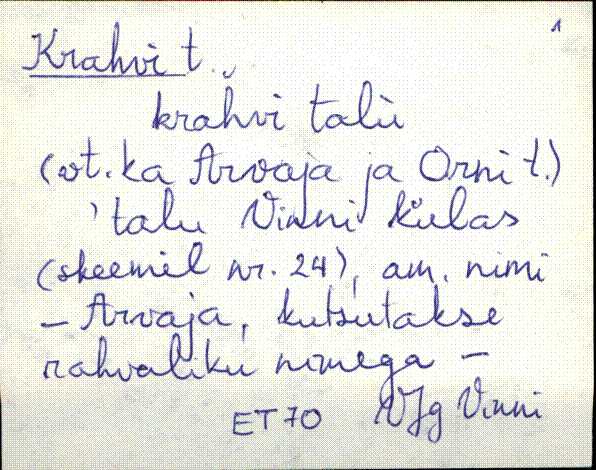 1
Krahvi t.
krahvi talu
(vt. ka Arvaja ja Orni t.)
'talu Vinni külas
(skeemil nr. 24), am. nimi
– Arvaja, kutsutakse
rahvaliku nimega –
ET 70 VJg Vinni